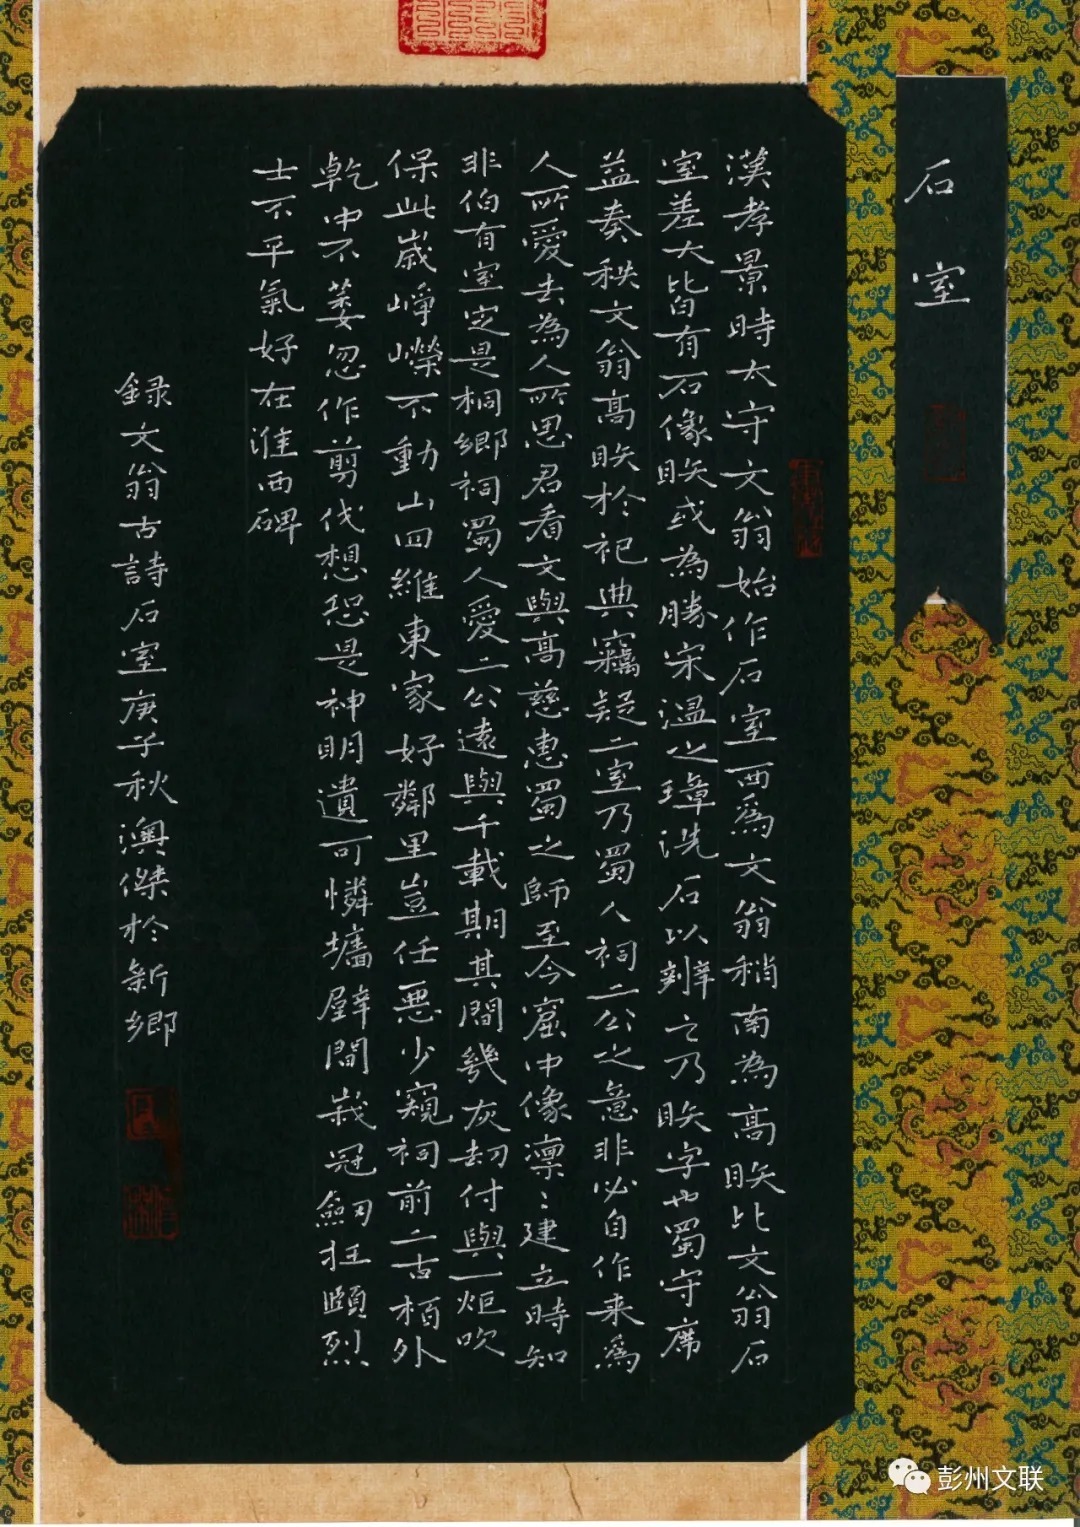 石室
漢孝景時太守文翁始作石室西為文翁稍南為高眹比文翁石
室差大皆有石像眹或為勝宋溫之璋洗石以辨之乃眹字也蜀守席
益奏秩文翁高眹於祀典竊疑二室乃蜀人祠二公之意非必自作来為
人所愛去為人所思君看文與高慈惠蜀之師至今窟中像凛〻建立時知
非伯有室定是桐鄉祠蜀人愛二公遠與千載期其間幾灰劫付與一炬吹
保此嵗崢嶸不動山四維東家好鄰里豈任惡少窺祠前二古栢外
乾中不萎忽作剪伐想恐是神明遺可憐墻壁間峩冠劔拄頤烈
士不平氣好在淮西碑
録文翁古詩石室庚子秋澳傑於新鄉
彭州文联